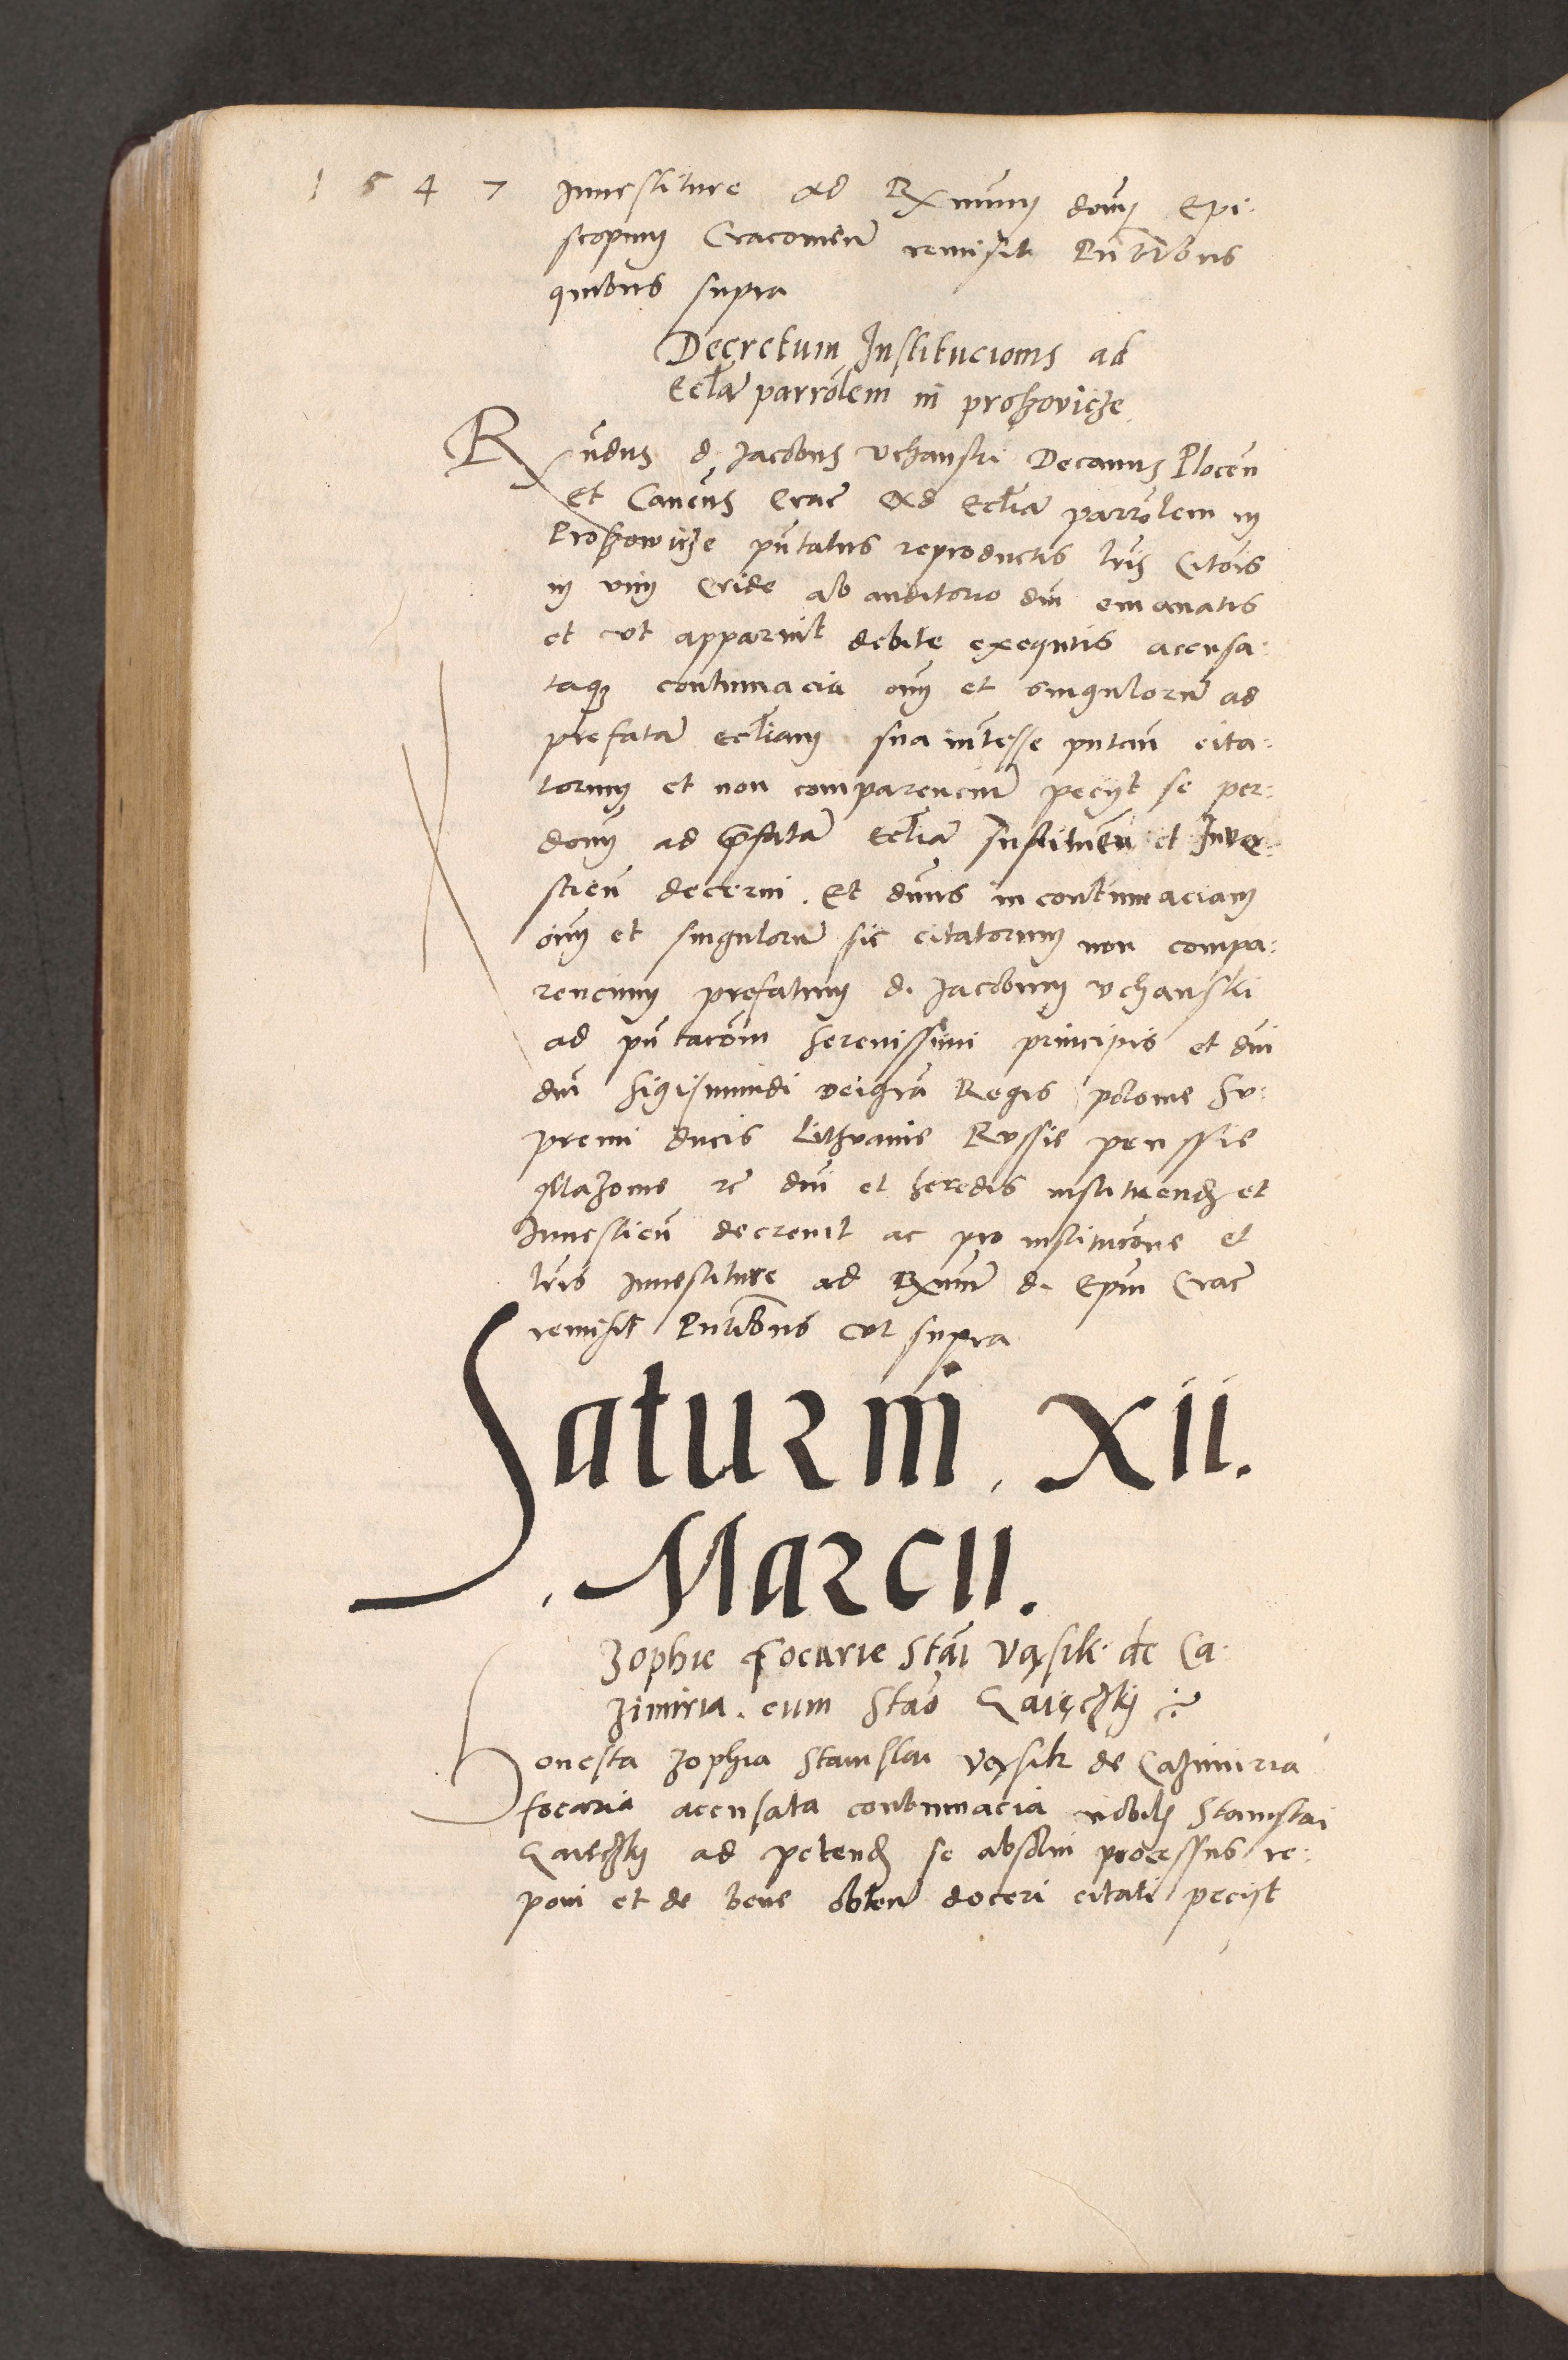 1547 Inuestiture ad Rx̄mum dom̄ Epi-
scopum Cracouien̄ remisit Pn̄tibus
quibus supra
Decretum Institucionis ad
Ecl̄iā parrōlem in proszovicze
Rx̄ndus d. Jacobus Vchanski Decanus Plocen̄
et Canc̄us Crac̄ Ad Ecl̄iā parrōlem in
Proszowicze pn̄tatus reproductis lr̄is Citōis
in vim Cride ab auditorio dn̄i emanatis
et vt apparuit debite exequtis accusa-
taq3 contumacia om̄ et singulorū ad
prefatā ecl̄iam sua int̄esse putan̄ cita-
torum et non comparenciū pecyt se per
dom̄ ad prefatā Ecl̄iā Instituen̄ et Inve-
stien̄ decerni. Et dn̄us in contumaciam
om̄ et singulorū sic citatorum non compa-
rencium prefatum d. Jacobum Vchanski
ad pn̄tacōm Serenissimi principis et dn̄i
dn̄i Sigismundi deigrā Regis polonie Su-
premi ducis Lithvanie Russie prussie
Mazouie rc̄ dn̄i et heredis instituend et
Inuestien̄ decreuit ac pro institucōne et
lr̄is Inuestiture ad Rx̄mū d. Ep̄um Crac̄
remisit Pn̄tibus vt supra
Saturni. XII.
. Marcii.
Zophie Focarie Stāi Vassik de Ca-
zimiria. cum Stāo Gaięczki
Honesta Zophia Stanislai Vassik de Cazimiria
focaria accusata contumacia nobilis Stanislai
Gaięczki ad petend se absolui processus re-
poni et de bene obten̄ doceri citati pecyt